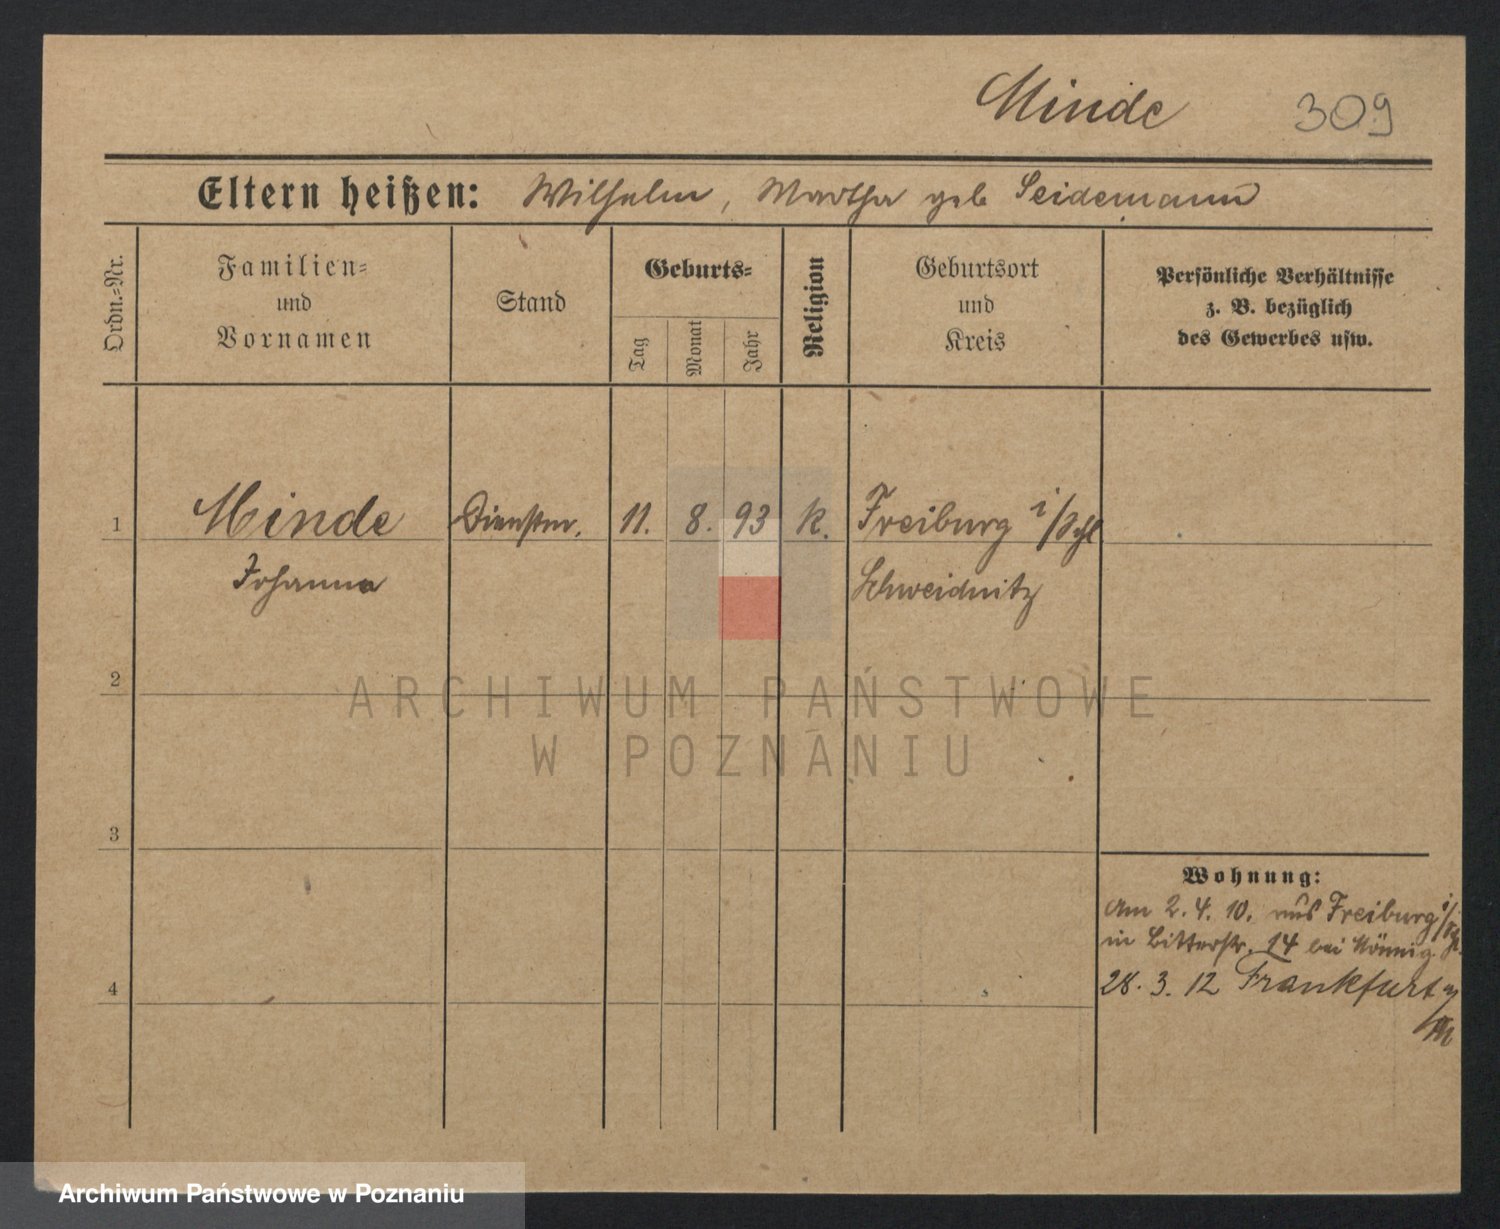 Minde 309
Eltern heißen: Wilhelm, Martha geb Seidemann
Ordn.=Nr.
Familien=
und
Vornamen
Stand
Geburts=
Tag
Monat
Jahr
Religion
Geburtsort
und
Kreis
Persönliche Verhältnisse
z. B. bezüglich
des Gewerbes usw.
1 Minde Dienstm. 11. 8. 93 k. Freiburg i/Schl
Johanna Schweidnitz
2
3
4
Wohnung:
Am 2.4.10. aus Freiburg i/
in Bitterstr. 14 bei
28.3.12 Frankfurt
ARCHIWUM PAŃSTWOWE
W POZNANIU
Archiwum Państwowe w Poznaniu